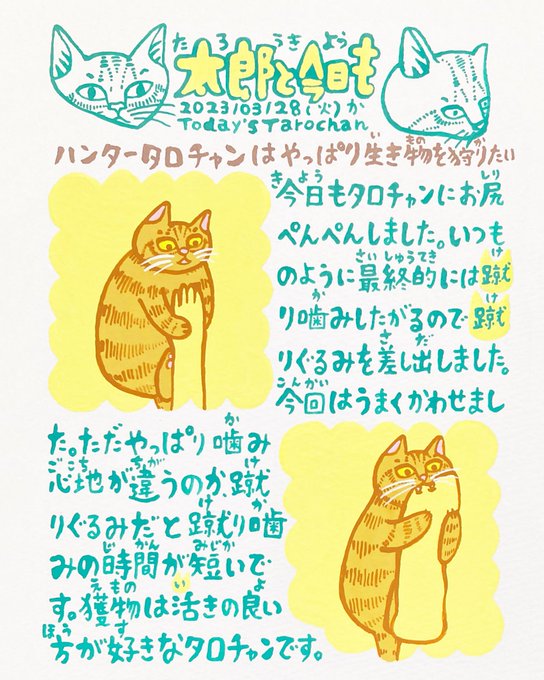 太郎と今日も
たろうきょう
2023/03/28(火)か
Today's Tarochan
ハンタータロチャンはやっぱり生き物を狩りたい
今日もタロチャンにお尻
ぺんぺんしました。いつも
のように最終的には蹴
り噛みしたがるので蹴
りぐるみを差し出しました。
今回はうまくかわせまし
た。ただやっぱり噛み
心地が違うのか、蹴
りぐるみだと蹴り噛
みの時間が短いで
す。獲物は活きの良い
方が好きなタロチャンです。